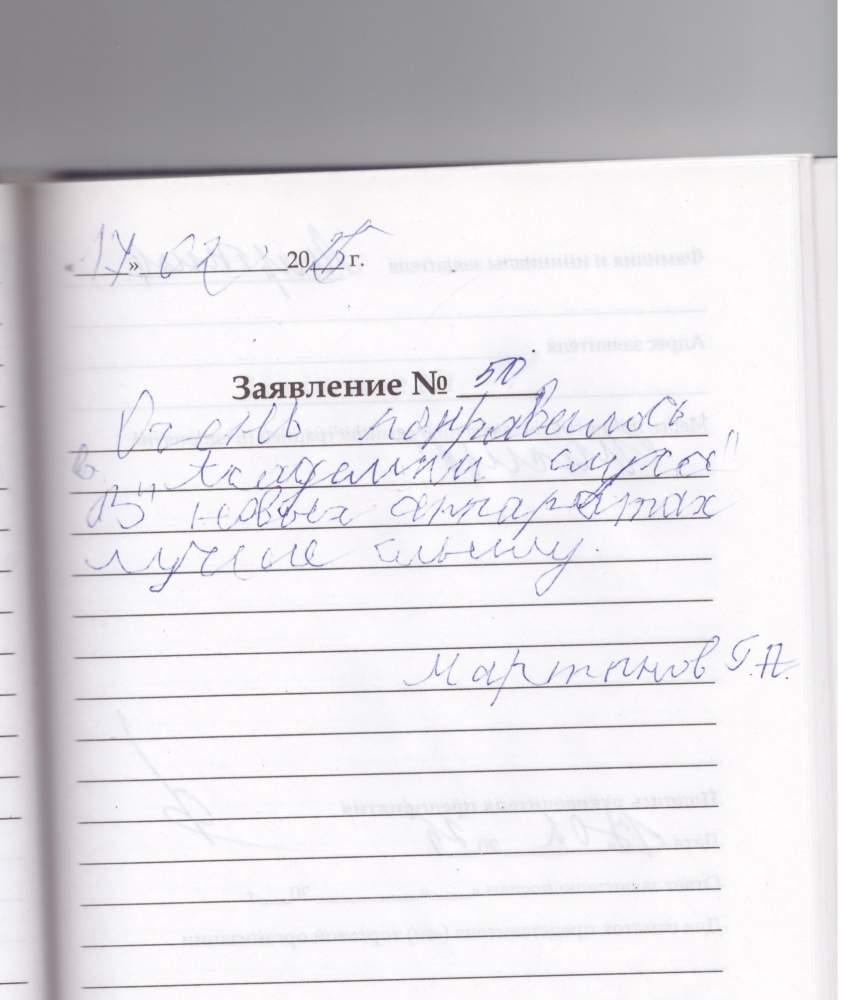 «17» 02 2025 г.
Заявление № 50
Очень понравилось
в "Академии слуха"
В новых аппаратах
лучше слышу.
Мартынов Г.Н.